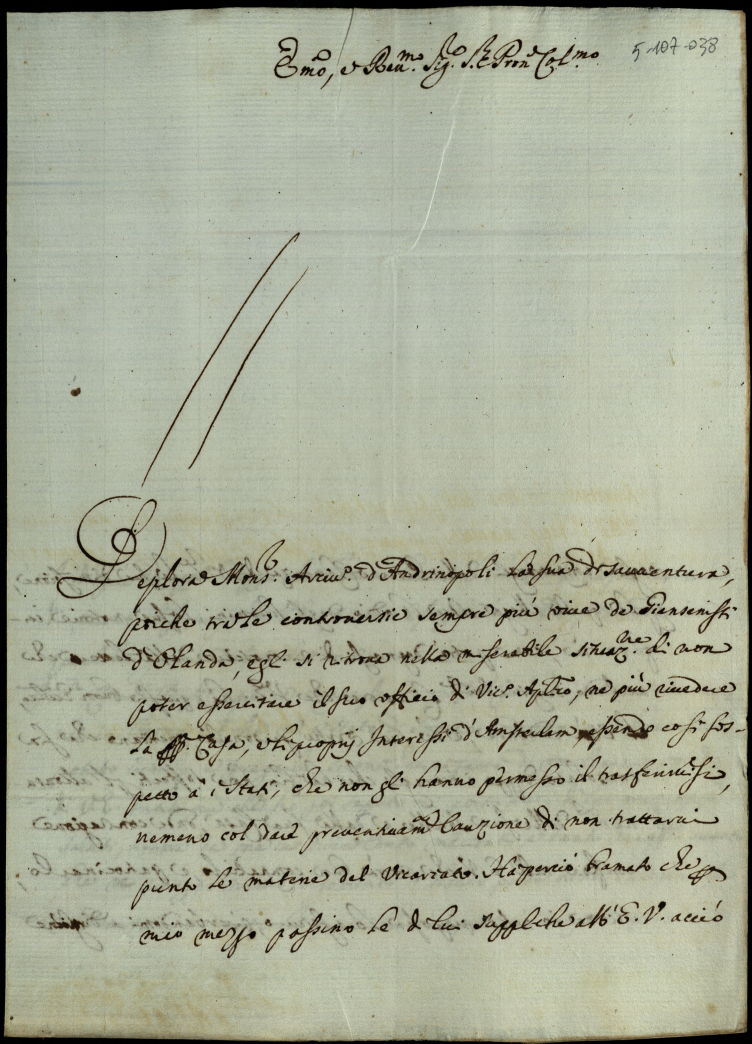 5-107-038
Emo, e Reu.mo Sig.r S.r e Pron Col.mo
Deplora Mons.r Arciu.o d'Andrinopoli la sua disauuentura,
poiche tra le controuersie sempre più viue de Giansenisti
d'Olanda, egli si ritroua nella miserabile situaz.ne di non
poter essercitare il suo officio di Vic.o Aplico, ne più riuedere
la ppa Casa, e li proprij Interessi d'Amsterdam, essendo così sos-
petto à i Stati, che non gli hanno permesso il trasferiruisi,
nemeno col dare preventiuam.te Cauzione di non trattarui
punto le materie del Vicariato. Hà perciò bramato che p
mio mezzo passino le di lui suppliche all'E. V. acciò